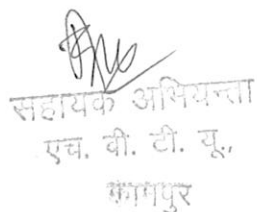 सहायक अभियन्ता
एच. वी. टी. यू.,
कानपुर